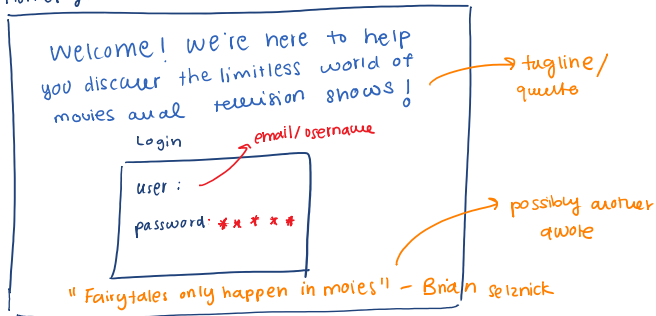 Welcome! We're here to help
you discover the limitless world of
movies and television shows!
tagline/
quote
Login
email/username
user :
password: *****
possibly another
quote
"Fairytales only happen in moies" - Brian Selznick